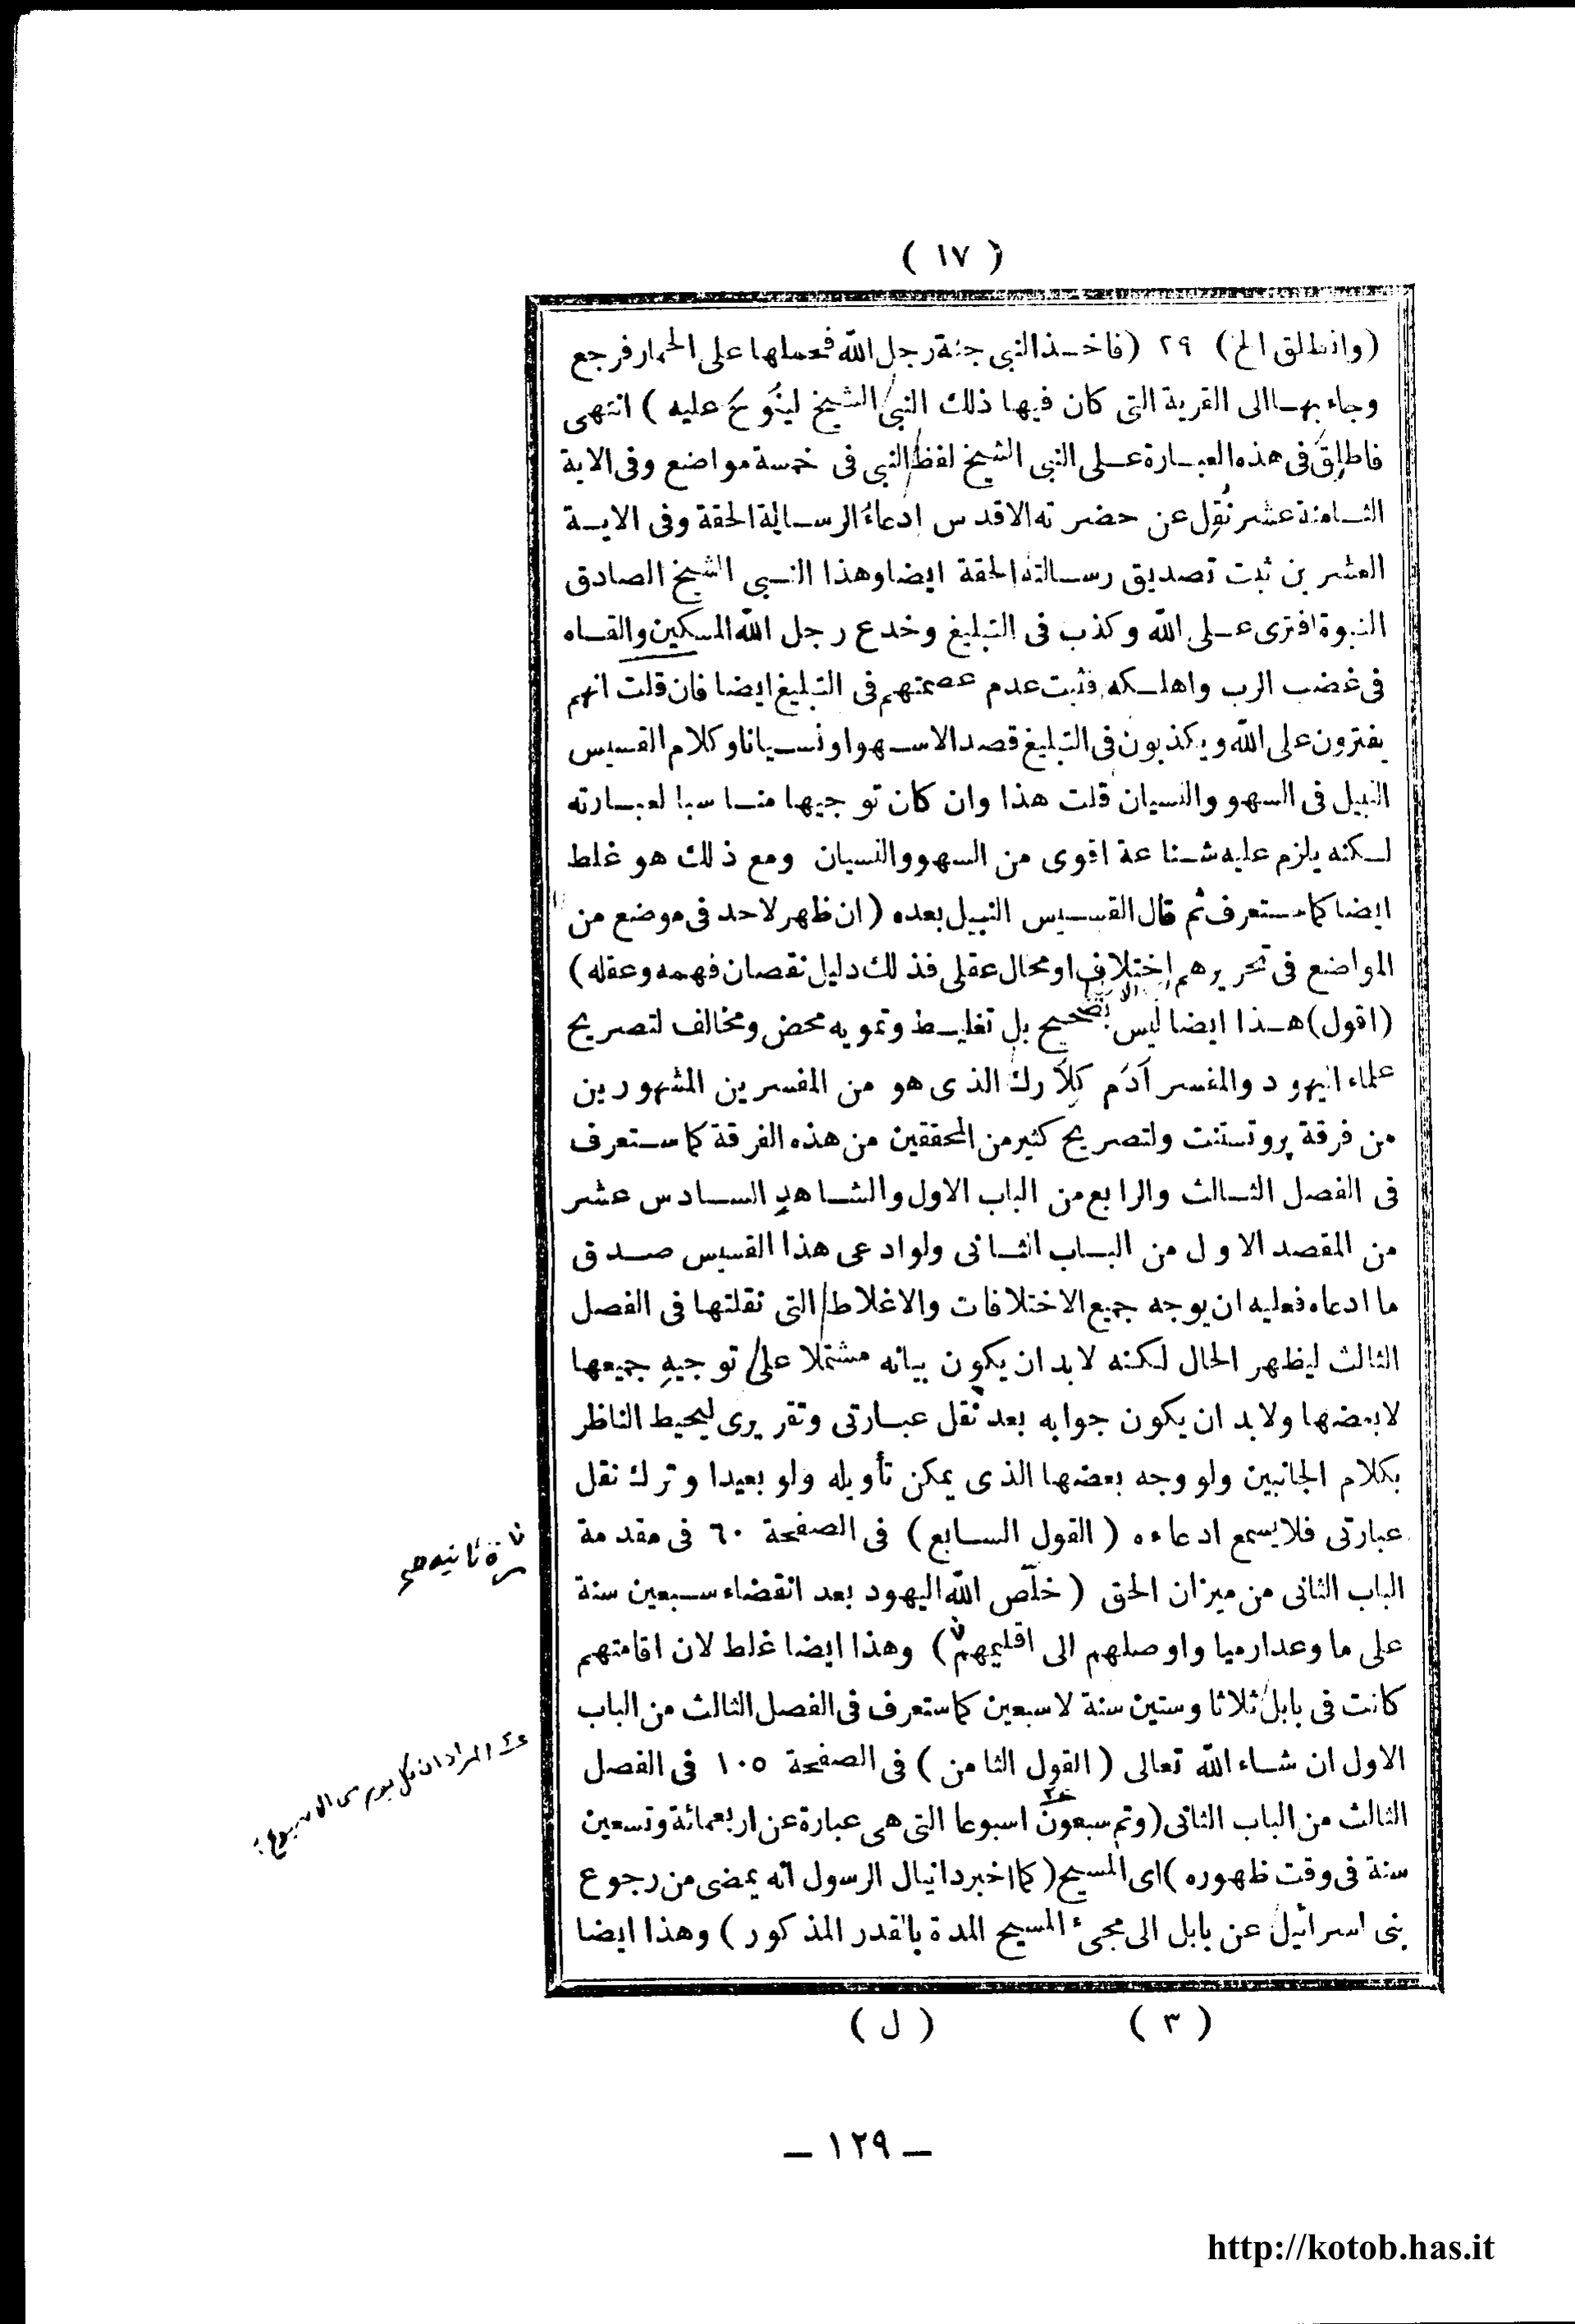 ( ١٧ )
(وانطلق الخ) ٢٩ (فاخذ النبى جثة رجل الله فحملها على الحمار فرجع
وجاء بها الى القرية التى كان فيها ذلك النبى الشيخ لينوح عليه ) انتهى
فاطلق فى هذه العبارة على النبى الشيخ لفظ النبى فى خمسة مواضع وفى الاية
الثامنة عشر نُقِل عن حضرته الاقدس ادعاءُ الرسالة الحقة وفى الاية
العشرين ثبت تصديق رسالته الحقة ايضا وهذا النبى الشيخ الصادق
النبوة افترى على الله وكذب فى التبليغ وخدع رجل الله المسكين والقاه
فى غضب الرب واهلكه فثبت عدم عصمتهم فى التبليغ ايضا فان قلت انهم
يفترون على الله ويكذبون فى التبليغ قصدا لا سهوا ونسيانا وكلام القسيس
النبيل فى السهو والنسيان قلت هذا وان كان توجيها مناسبا لعبارته
لكنه يلزم عليه شناعة اقوى من السهو والنسيان ومع ذلك هو غلط
ايضا كما ستعرف ثم قال القسيس النبيل بعده (ان ظهر لاحد فى موضع من
المواضع فى تحريرهم اختلاف او محال عقلى فذلك دليل نقصان فهمه وعقله)
(اقول) هذا ايضا ليس بصحيح بل تغليط وتمويه محض ومخالف لتصريح
علماء اليهود والمفسر آدَم كِلاَرك الذى هو من المفسرين المشهورين
من فرقة پروتستنت ولتصريح كثير من المحققين من هذه الفرقة كما ستعرف
فى الفصل الثالث والرابع من الباب الاول والشاهدِ السادس عشر
من المقصد الاول من الباب الثانى ولو ادعى هذا القسيس صدق
ما ادعاه فعليه ان يوجه جميع الاختلافات والاغلاط التى نقلتها فى الفصل
الثالث ليظهر الحال لكنه لابد ان يكون بيانه مشتملا على توجيهِ جميعها
لا بعضها ولابد ان يكون جوابه بعد نقل عبارتى وتقريرى ليحيط الناظر
بكلام الجانبين ولو وجه بعضها الذى يمكن تأويله ولو بعيدا وترك نقل
عبارتى فلا يسمع ادعاءه ( القول السابع ) فى الصفحة ٦٠ فى مقدمة
الباب الثانى من ميزان الحق ( خلّص الله اليهود بعد انقضاء سبعين سنة
على ما وعد ارميا واوصلهم الى اقليمهم ) وهذا ايضا غلط لان اقامتهم
كانت فى بابل ثلاثا وستين سنة لا سبعين كما ستعرف فى الفصل الثالث من الباب
الاول ان شاء الله تعالى ( القول الثامن ) فى الصفحة ١٠٥ فى الفصل
الثالث من الباب الثانى (وتم سبعون اسبوعا التى هى عبارة عن اربعمائة وتسعين
سنة فى وقت ظهوره ) اى المسيح ( كما اخبر دانيال الرسول انه يمضى من رجوع
بنى اسرائيل عن بابل الى مجىء المسيح المدة بالقدر المذكور ) وهذا ايضا
مرة ثانية
المراد ان كل يوم من الاسبوع
( ٣ ) ( ل )
– ١٢٩ –
http://kotob.has.it